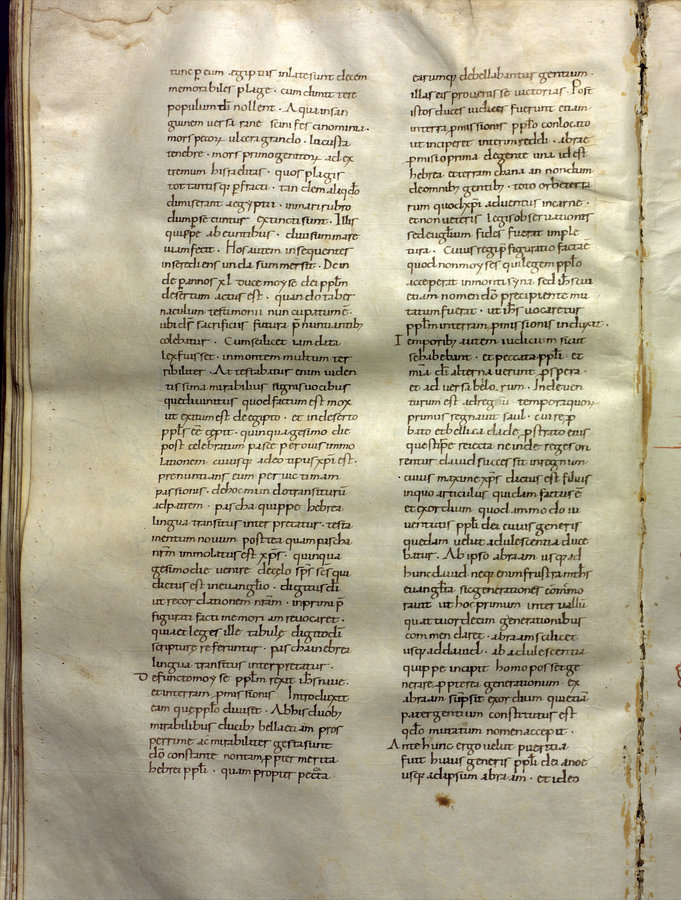 tunc p eum aegiptiis inlate sunt decem
memorabiles plage · cum dimittere
populum dī nollent · Aqua in san
guinem versa rane scinifes cinomia ·
mors pecorꝝ ulcera grando · locusta
tenebre · mors primogenitorꝝ ad ex
tremum hisraelitas · quos plagis
tot tantisq; pfracti · tandem aliqdō
dimiserant aegyptii · in mari rubro
dum pse cuntur extincti sunt · Illis
quippe abeuntibus · divisum mare
viam fecit · Hos autem insequentes
in se rediens unda summersit · Dein
de p annos xl duce moyse dei pplm
desertum actus est · quando taber
naculum testimonii nuncupatum ē ·
ubi dš sacrificiis futura pnuntiantibꝫ
colebatur · Cum scilicet iam data
lex fuisset · in montem multum ter
ribiliter · Attestabatur enim eviden
tissima mirabilibus signis vocibus
que divinitus quod factum est mox
ut exitum est de egipto · et in deserto
ppls ēē cepit · quinquagesimo die
post celebratum pasce per ovis immo
lationem cuiusq; adeo tipus xpi est ·
prenuntians eum per victimam
passionis · de hoc mundo transiturū
ad patrem · pascha quippe hebrea
lingua transitus interpretatur · testa
mentum novum postea quam pascha
nrm immolatus est xps · quinqua
gesimo die venire de celo sps scs qui
dictus est in evanglio · digitus di
ut recordationem nram · in primi p
figurati facti memoriam revocaret ·
quia et leges ille tabule digito di
scripture referuntur · pascha in ebrea
lingua transitus interpretatur ·
Defuncto moyse pplm rexit ihs nave ·
et in terram pmissionis Introduxit
eam que pplo divisit · Ab his duobꝫ
mirabilibus ducibꝫ bella etiam pros
perrime ac mirabiliter gesta sunt
dō constante non tam ppter merita
hebrei ppli · quam propter peccata
earumq; debellabantur gentium ·
illas eis provenisse victorias · Post
istos duces iudices fuerunt etiam
in terra pmissionis pplo conlocato
ut inciperet interim reddi · abrae
pmisio prima de gente una id est
hebrea et terram chana an nondum
de omnibꝫ gentibꝫ · toto orbe terra
rum quod xpi adventus in carne ·
et non veteris legis observationis
sed euglium fides fuerat imple
tura · Cuius rei pfiguratio factae
quod non moyses qui legem pplo
acceperat in monti syna sed ihs cui
etiam nomen dō precipiente mu
tatum fuerat · ut ihs vocaretur
pplm in terram pmissionis induxit ·
Temporibꝫ autem iudicum sicut
se habebant · et peccata ppli · et
mia di alternaverunt prospera ·
et adversa bello rum · Inde ven
tum est ad regū temporaquorꝫ
primus regnavit saul · cui re p
bato et bellica clade pstrato eius
que stirpe reiecta ne inde reges ori
rentur david successit in regnum
· cuius maxime xps dictus est filius
in quo articulus quidam factus ē
et exordium quodammodo iu
ventutis ppli dei cuius generis
quedam velut adulescentia duce
batur · Ab ipso abraam usq; ad
hunc david neq; enim frustra maths
evanglista sic generationes cōmmo
ravit ut hoc primum intervallū
quattuordecim generationibus
commendaret · abraam scilicet
usq; ad david · ab adulescentia
quippe incipit homo posse ge
nerare ppterea generationum ex
abraam supsit exordium qui etiā
pater gentium constitutus est
qdō mutatum nomen accepit ·
Ante hunc ergo velut pueritia
fuit huius generis ppli dei a noe
usq; ad ipsum abraam · et ideo